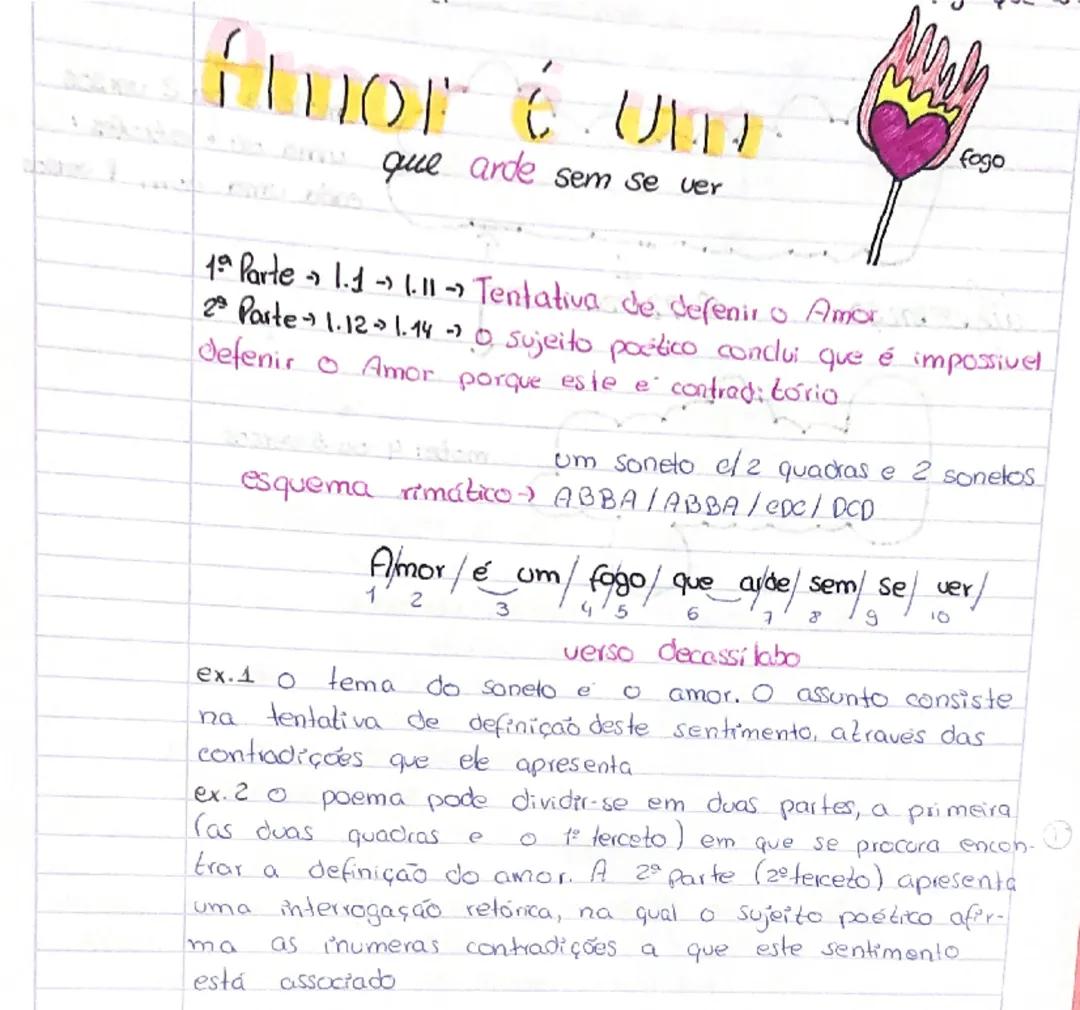 Amor é um
fogo
que arde sem se ver
1ª Parte → l.1 → l.11 → Tentativa de defenir o Amor
2ª Parte → l.12 → l.14 → O sujeito poético conclui que é impossivel
defenir o Amor porque este e' contraditório
um soneto c/ 2 quadras e 2 sonetos
esquema rimático → ABBA / ABBA / CDC / DCD
A/mor / é um / fo/go / que ar/de / sem / se / ver /
1 2 3 4 5 6 7 8 9 10
verso decassílabo
ex.1 O tema do soneto é o amor. O assunto consiste
na tentativa de definição deste sentimento, através das
contradições que ele apresenta
ex.2 O poema pode dividir-se em duas partes, a primeira
(as duas quadras e o 1º terceto) em que se procura encon-
trar a definição do amor. A 2ª parte (2º terceto) apresenta
uma interrogação retórica, na qual o sujeito poético afir-
ma as inumeras contradições a que este sentimento
está associado